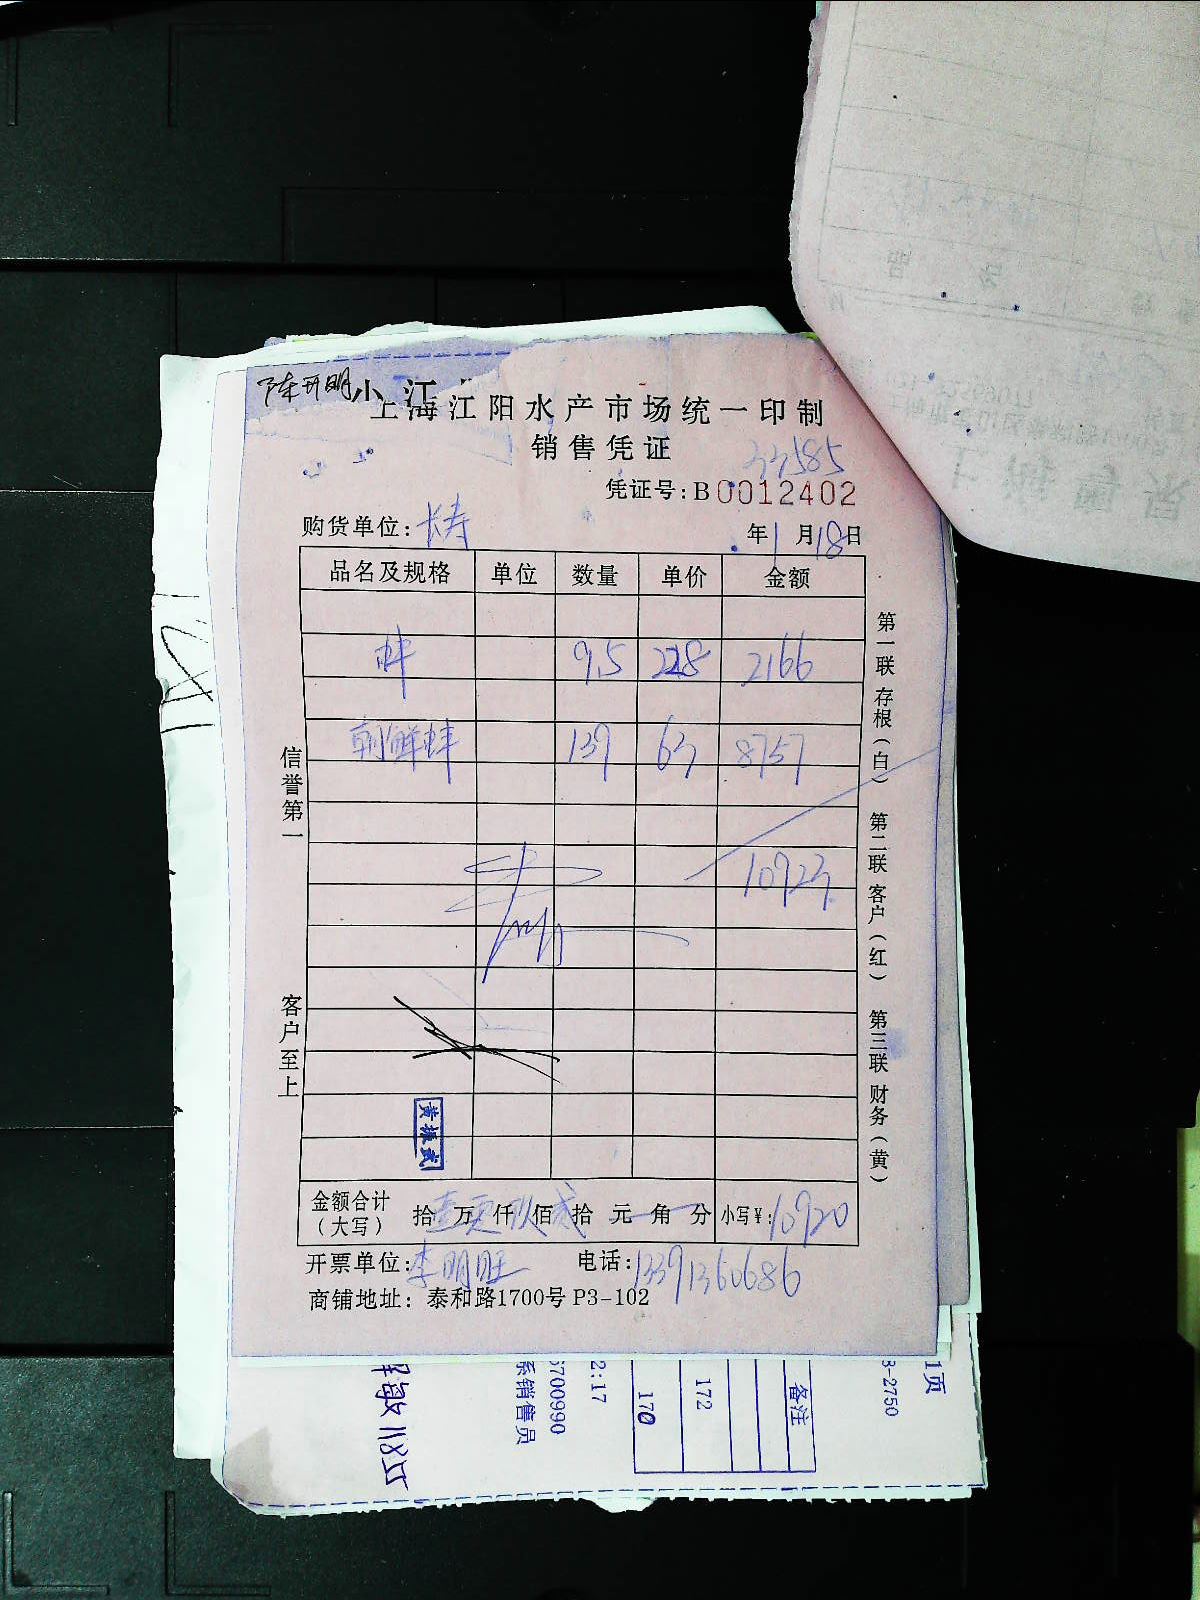 陈开明 小 江
上海江阳水产市场统一印制
销售凭证
33585
凭证号:B0012402
购货单位:长寿 年1月18日
品名及规格 单位 数量 单价 金额
蚌 9.5 228 2166
朝鲜蚌 139 63 8757
10923
黄振武
金额合计（大写） 拾壹万零仟玖佰贰拾元角分 小写¥:10920
开票单位:李明旺 电话:13391360686
商铺地址: 泰和路1700号 P3-102
信誉第一
客户至上
第一联 存根(白) 第二联 客户(红) 第三联 财务(黄)
1页
3-2750
备注
172
170
2:17
6700990
系销售员